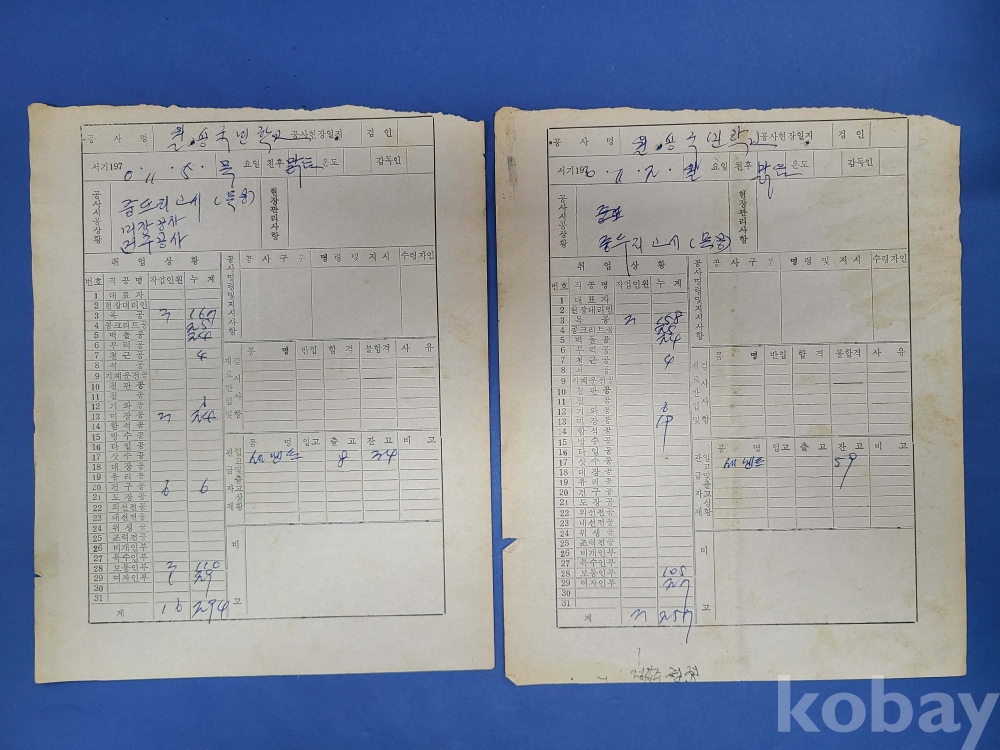 공사명 월 용 국 민 학 교 공사현장일지 검인
서기197 0 . 11 . 5 . 목 요일 천후 맑음 온도 감독인
공사시공상황
(목공)
미장공사
현장관리사항
취업상황
번호 직공명 작업인원 누계
1 대표자
2 현장대리인
3 목공
4 콘크리트공
5 벽돌공 24
6 부럭공
7 철근공 4
8 석공
9 기계운전공
10 철관공
11 철공
12 기와공
13 미장공 24
14 함석공
15 방수공
16 타일공
17 샷수공
18 대장공
19 유리공
20 건구공 6 6
21 도장공
22 외선전공
23 내선전공
24 위생공
25 조력전공
26 비개인부
27 특수인부
28 보통인부 110
29 여자인부 29
30
31
계 16 294
공사명령및지시사항
공사구분 명령및지시 수령자인
재료반입및검사사항
품명 반입 합격 불합격 사유
관급자재입고및출고상황
품명 입고 출고 잔고 비고
세멘트 8 34
비고
공사명 월 용 국 민 학 교 공사현장일지 검인
서기197 0 . 11 . 2 . 월 요일 천후 맑음 온도 감독인
공사시공상황
(목공)
현장관리사항
취업상황
번호 직공명 작업인원 누계
1 대표자
2 현장대리인
3 목공 158
4 콘크리트공
5 벽돌공 24
6 부럭공
7 철근공 4
8 석공
9 기계운전공
10 철관공
11 철공
12 기와공 6
13 미장공
14 함석공
15 방수공
16 타일공
17 샷수공
18 대장공
19 유리공
20 건구공
21 도장공
22 외선전공
23 내선전공
24 위생공
25 조력전공
26 비개인부
27 특수인부
28 보통인부 108
29 여자인부 27
30
31
계
공사명령및지시사항
공사구분 명령및지시 수령자인
재료반입및검사사항
품명 반입 합격 불합격 사유
관급자재입고및출고상황
품명 입고 출고 잔고 비고
세멘트 59
비고
kobay